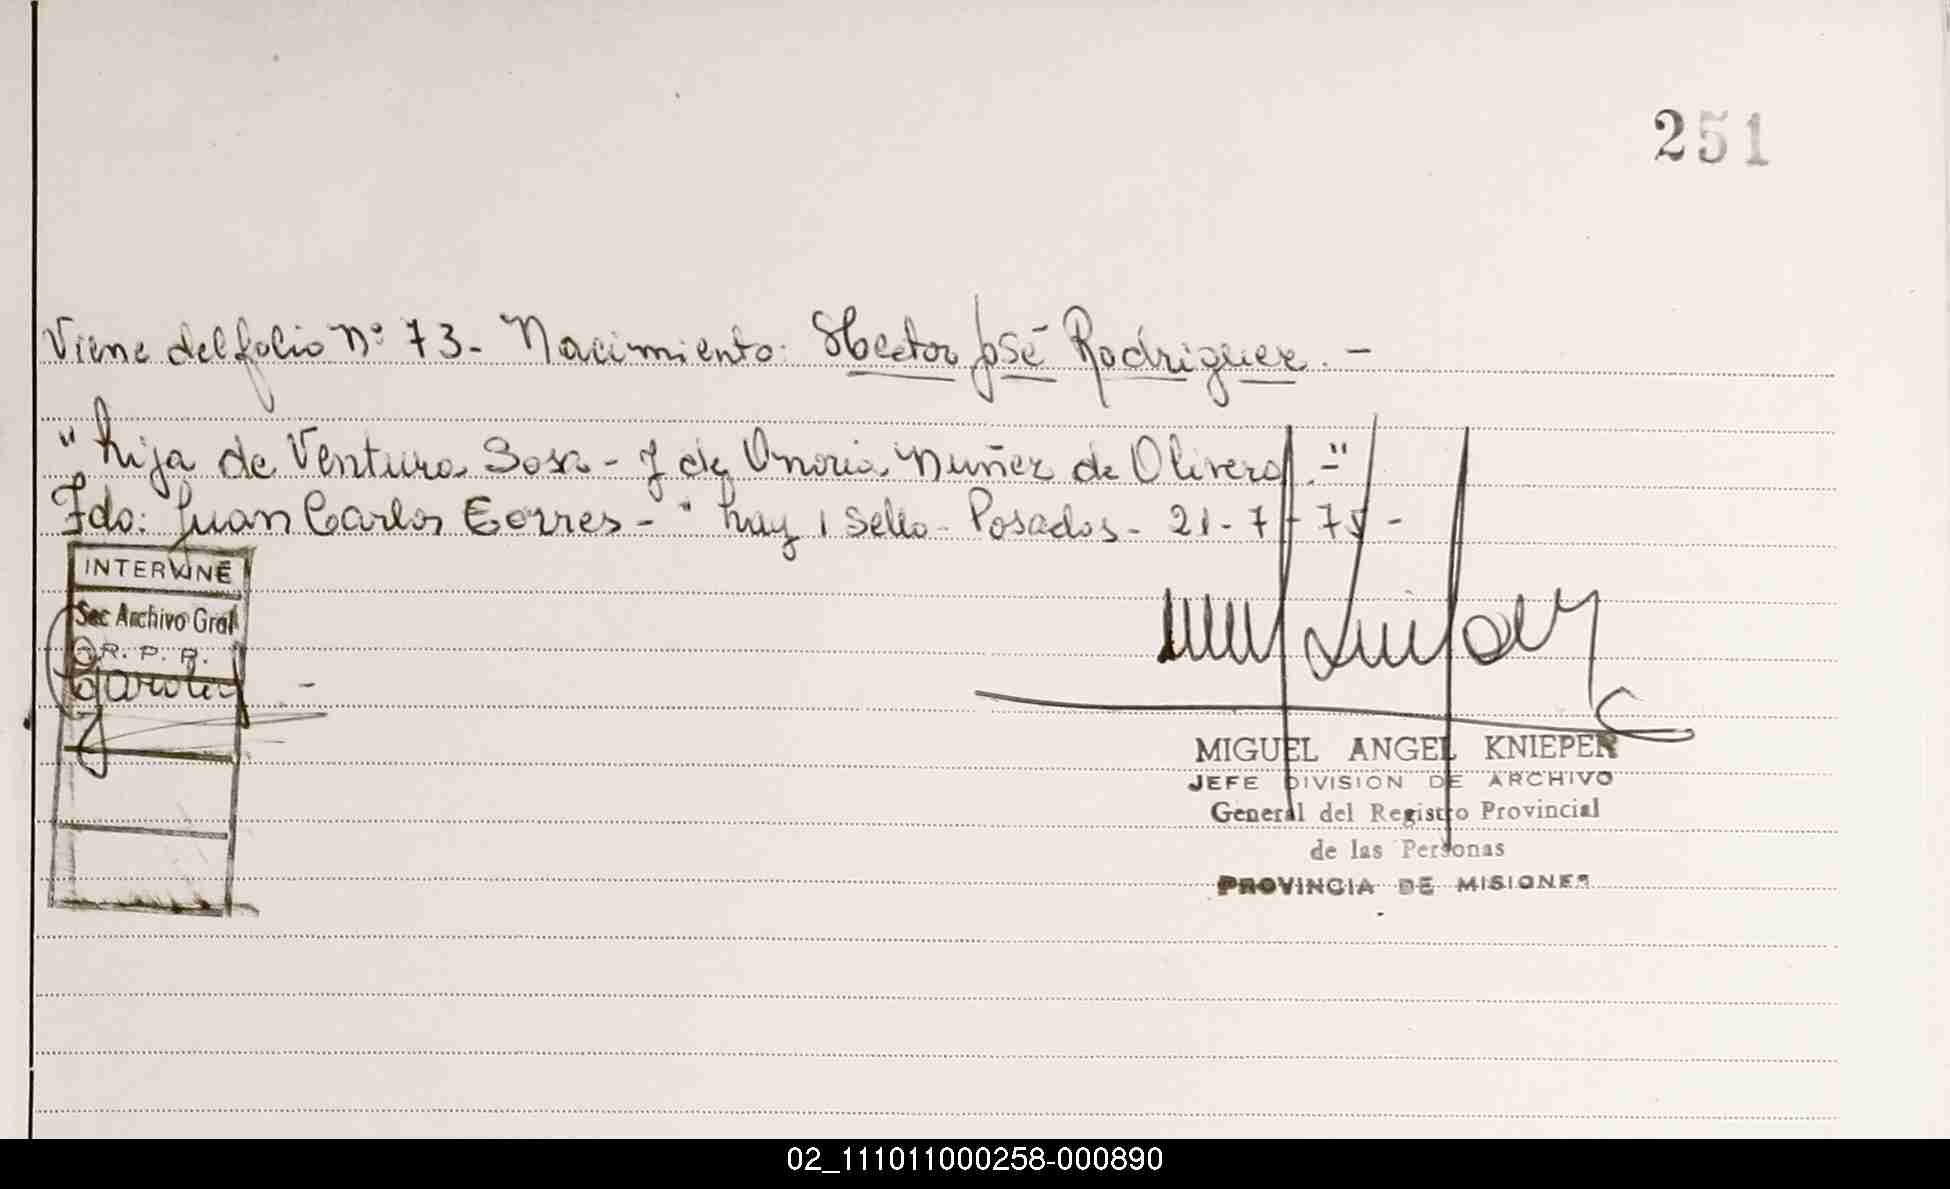 251
Viene del folio Nº 73 - Nacimiento: Hector José Rodriguez. -
"hija de Ventura Sosa - y de Onoria Nuñez de Olivera -"
Fdo: Juan Carlos Torres - " hay 1 sello - Posadas - 21 - 7 - 75 -
INTERVINE
Sec Archivo Gral
R. P. P.
MIGUEL ANGEL KNIEPER
JEFE DIVISION DE ARCHIVO
General del Registro Provincial
de las Personas
PROVINCIA DE MISIONES
02_111011000258-000890